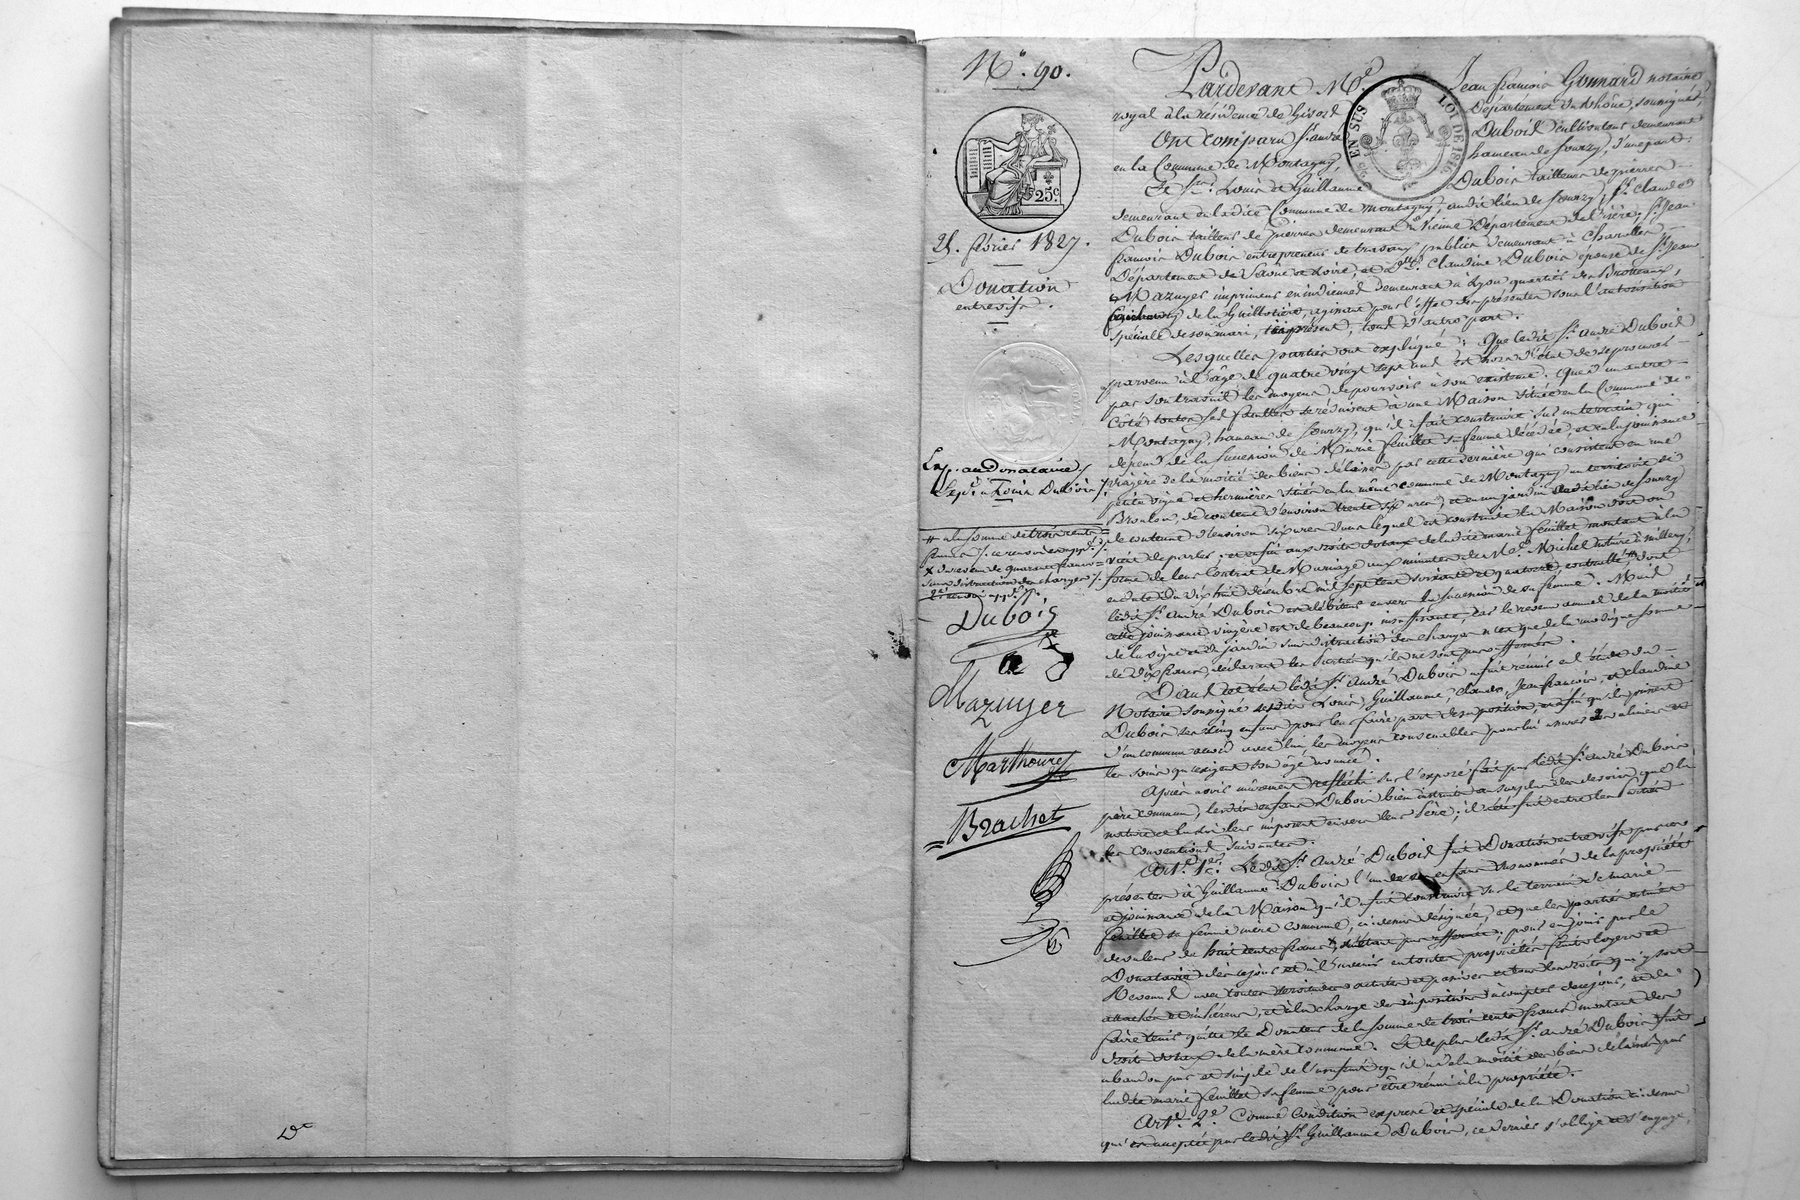 De
N.° 90.
25.c
28. février 1827.
Donation
entrevifs.
Exp. au Donataire
Exp. à Louis Dubois
# a la somme de trois cents
francs /. ce renvoi app.é /.
x du revenu de quarante francs
sans distraction des charges /.
2.e renvoi app.é
Dubois
Mazuyer
Marthoures
Brachet
EN SUS
LOI DE 1816
Pardevant M.e Jean françois Gonnard notaire
royal à la résidence de Givord Département du Rhône, soussignés,
Ont comparu S.r andré Dubois cultivateur demeurant
en la Commune de Montagny hameau de Sourzy, d'une part:
Et S.rs Louis et Guillaume Dubois tailleurs de pierres
demeurant en ladite Commune de Montagny audit lieu de Sourzy, S.r Claude
Dubois tailleur de pierres demeurant à Vienne Département de l'isère, S.r Jean
françois Dubois entrepreneur de travaux publics demeurant à Charolles
Département de Saône et Loire, et D.me Claudine Dubois épouse de S.r Jean
Mazuyer imprimeur en indiennes demeurant à Lyon quartier des Brotteaux,
de la Guillotière, agissant pour l'effet des présentes sous l'autorisation
spéciale de son mari, ici présent, tous d'autre part.
Lesquelles parties ont expliqué: Que ledit S.r André Dubois
parvenu à l'âge de quatre vingt sept ans est hors d'état de se procurer
par son travail les moyens de pourvoir à son existence. Que d'un autre
Côté toutes ses facultés se réduisent à une Maison située en la Commune de
Montagny, hameau de Sourzy, qu'il a fait construire sur un terrain qui
dépend de la succession de Marie feuillet sa femme décédée, et en la jouissance
viagère de la moitié des biens délaissés par cette dernière qui consistent en une
petite vigne et hermières situés en la même commune de Montagny au territoire de
Broulon, de contenue d'environ trente six ares, et en un jardin audit lieu de Sourzy
de contenue d'environ six ares dans lequel est construite la Maison dont on
vient de parler; et enfin aux droits dotaux de ladite marie feuillet montant à la
forme de leur Contrat de Mariage aux minutes de M.e Michel notaire à millery,
en date du dix huit décembre mil sept cent soixante et quatorze controllé, # dont
ledit S.r André Dubois est débiteur envers la succession de sa femme. Mais
cette jouissance viagère est de beaucoup insuffisante, car le revenu annuel de la moitié
de la vigne et du jardin sans distraction des charges n'est que de la modique somme
de dix francs, déclarant les Parties qu'ils ne sont pas affermés.
Dans cet état ledit S.r André Dubois a fait réunir en l'étude du
Notaire soussigné lesdits Louis, Guillaume, Claude, Jean françois, et Claudine
Dubois ses cinq enfans pour leur faire part de sa position, et afin qu'ils prissent
d'un commun accord avec lui, les moyens convenables pour lui assurer les alimens et
les soins qu'exigent son âge avancé.
Après avoir mûrement réfléchi sur l'exposé fait par ledit S.r André Dubois
père commun, lesdits enfans Dubois bien instruits au surplus des devoirs que la
nature et la loi leur imposent envers leur Père; il a été fait entre les parties
les conventions suivantes.
Art. 1.er Ledit S.r André Dubois fait Donation entre vifs par ces
présentes à Guillaume Dubois l'un de ses enfans susnommés de la propriété
et jouissance de la Maison qu'il a fait construire sur le terrain de marie
feuillet sa femme mère commune, ci-dessus désignée, et que les parties estiment
de valeur de huit cents francs x, n'étant pas affermée; pour en jouir par le
Donataire dès ce jour et à l'avenir en toute propriété, fruits loyers et
Revenus avec toutes servitudes actives et passives et tous les droits qui y sont
attachés et inhérens, et à la charge des impositions à compter de ce jour, et de
faire tenir quitte le Donateur de la somme de trois cents francs montant des
droits dotaux de la mère commune. Et de plus ledit S.r André Dubois fait
abandon pur et simple de l'usufruit qu'il a de la moitié des biens délaissés par
ladite marie feuillet sa femme pour être réuni à la propriété.
Art. 2.e Comme Condition expresse et spéciale de la Donation ci-dessus
qui est acceptée par ledit S.r Guillaume Dubois, ce dernier s'oblige et s'engage,